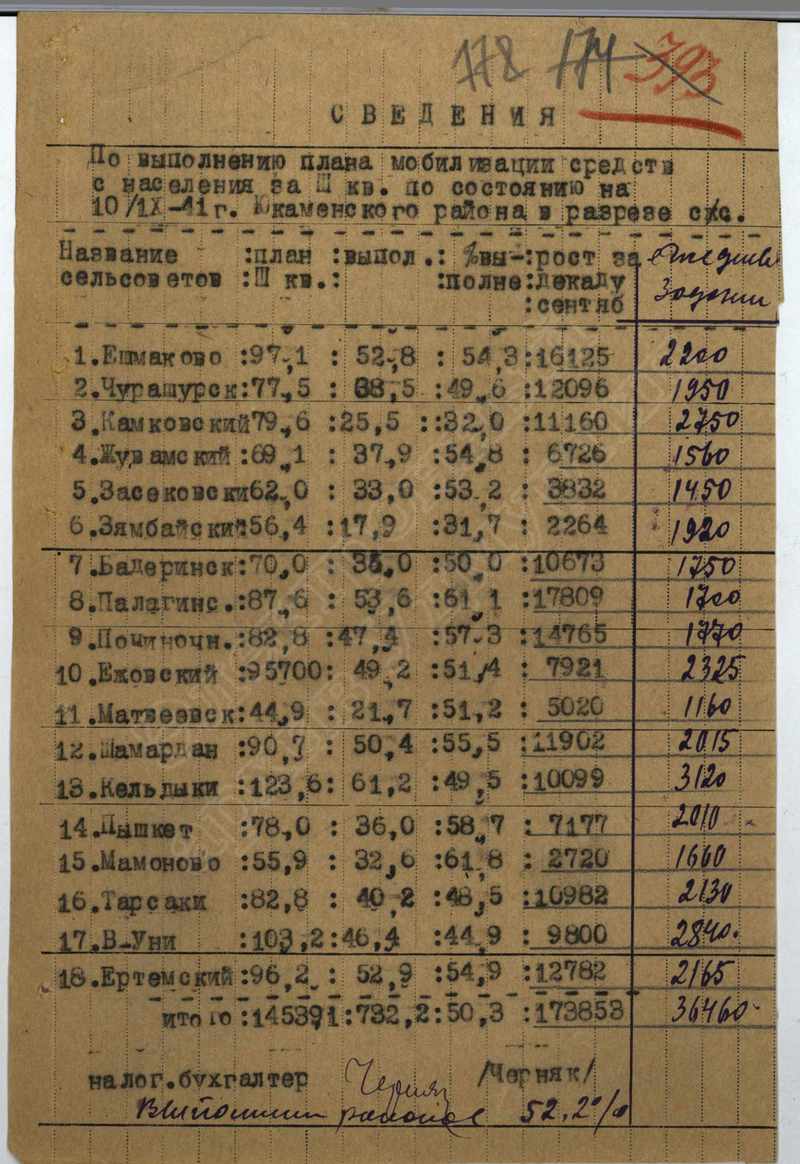 178 174 393
СВЕДЕНИЯ
По выполнению плана мобилизации средств
с населения за Ш кв. по состоянию на
10/IX-41г. Юкаменского района в разрезе с/с.
Название :план :выпол.: %вы-:рост за ежеднев
сельсоветов :Ш кв.: :полне:декаду задании
:сентяб
1.Ешмаково :97,1 : 52,8 : 54,3:16125 2200
2.Чурашурск:77,5 : 38,5 :49,6 :12096 1950
3.Камковский79,6 :25,5 ::32,0 :11160 2750
4.Жувамский :69,1 : 37,9 :54,8 : 6726 1560
5.Засековски62,0 : 33,0 :53,2 : 3832 1450
6.Зямбайский:56,4 :17,9 :31,7 : 2264 1920
7.Бадеринск:70,0 : 35,0 :50,0 :10673 1750
8.Палагинс.:87,6 : 53,6 :61,1 :17809 1700
9.Починочн.:82,8 :47,4 :57-3 :14765 1770
10.Ежовский :95700: 49,2 :51,4 : 7921 2325
11.Матвеевск:44,9 : 21,7 :51,2 : 5020 1160
12.Шамардан :90,7 : 50,4 :55,5 :11902 2015
13.Кельдыки :123,6: 61,2 :49,5 :10099 3120
14.Пышкет :78,0 : 36,0 :58,7 : 7177 2010
15.Мамоново :55,9 : 32,6 :61,8 : 2720 1660
16.Тарсаки :82,8 : 40,2 :48,5 :10982 2130
17.В-Уни :103,2:46,4 :44,9 : 9800 2840.
18.Ертемский:96,2 : 52,9 :54,9 :12782 2165
итого :145391:732,2:50,3 :173853 36460
налог.бухгалтер Черняк /Черняк/
Выполнили районов 52,2%